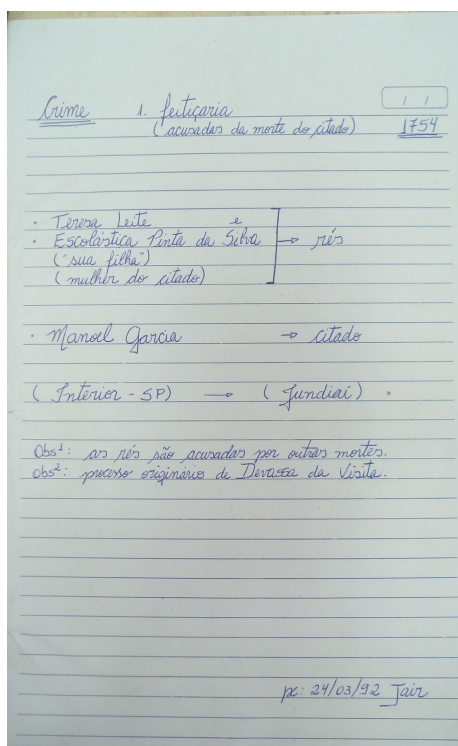 Crime 1. feitiçaria / /
(acusadas da morte do citado) 1754
· Teresa Leite e
· Escolástica Pinta da Silva → rés
("sua filha")
(mulher do citado)
· Manoel Garcia → citado
(Interior - SP) → (Jundiaí)
Obs¹: as rés são acusadas por outras mortes.
Obs²: processo originário de Devassa da Visita.
pc: 24/03/92 Jair